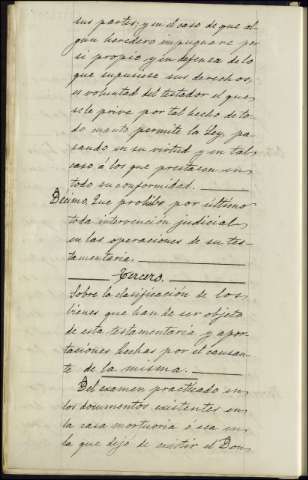 sus partes; y en el caso de que al-
gun heredero impugnare por
si propio y en defensa de lo
que supusiese sus derechos,
es voluntad del testador el que
se le prive por tal hecho de to-
do cuanto permite la Ley, pa-
sando en su virtud y en tal
caso á los que prestasen en
todo su conformidad.
Décimo, Que prohibe por último
toda intervención judicial
en las operaciones de su tes-
tamentaria.
Tercero.
Sobre la clasificación de los
bienes que han de ser objeto
de esta testamentaria y apor-
taciones hechas por el causan-
te de la misma.
Del examen practicado en
los documentos existentes en
la casa mortuoria ó sea en
la que dejó de existir el Don